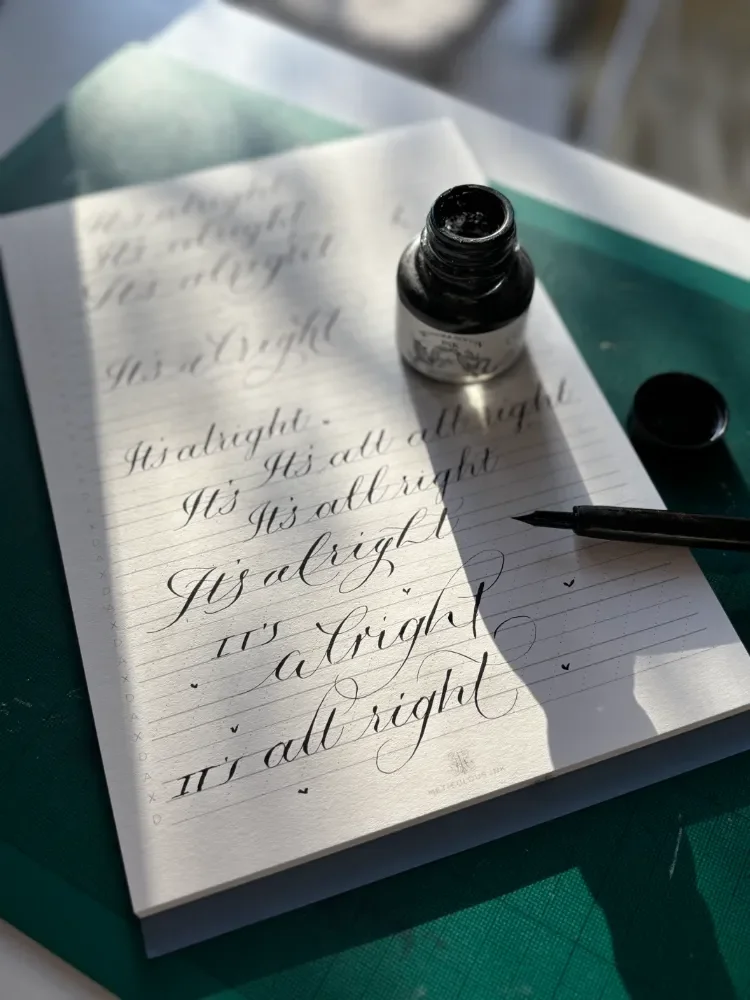 It's alright
It's alright
It's alright
It's alright
It's alright
It's It's all all right
It's all right
It's alright
IT'S alright
IT'S all right